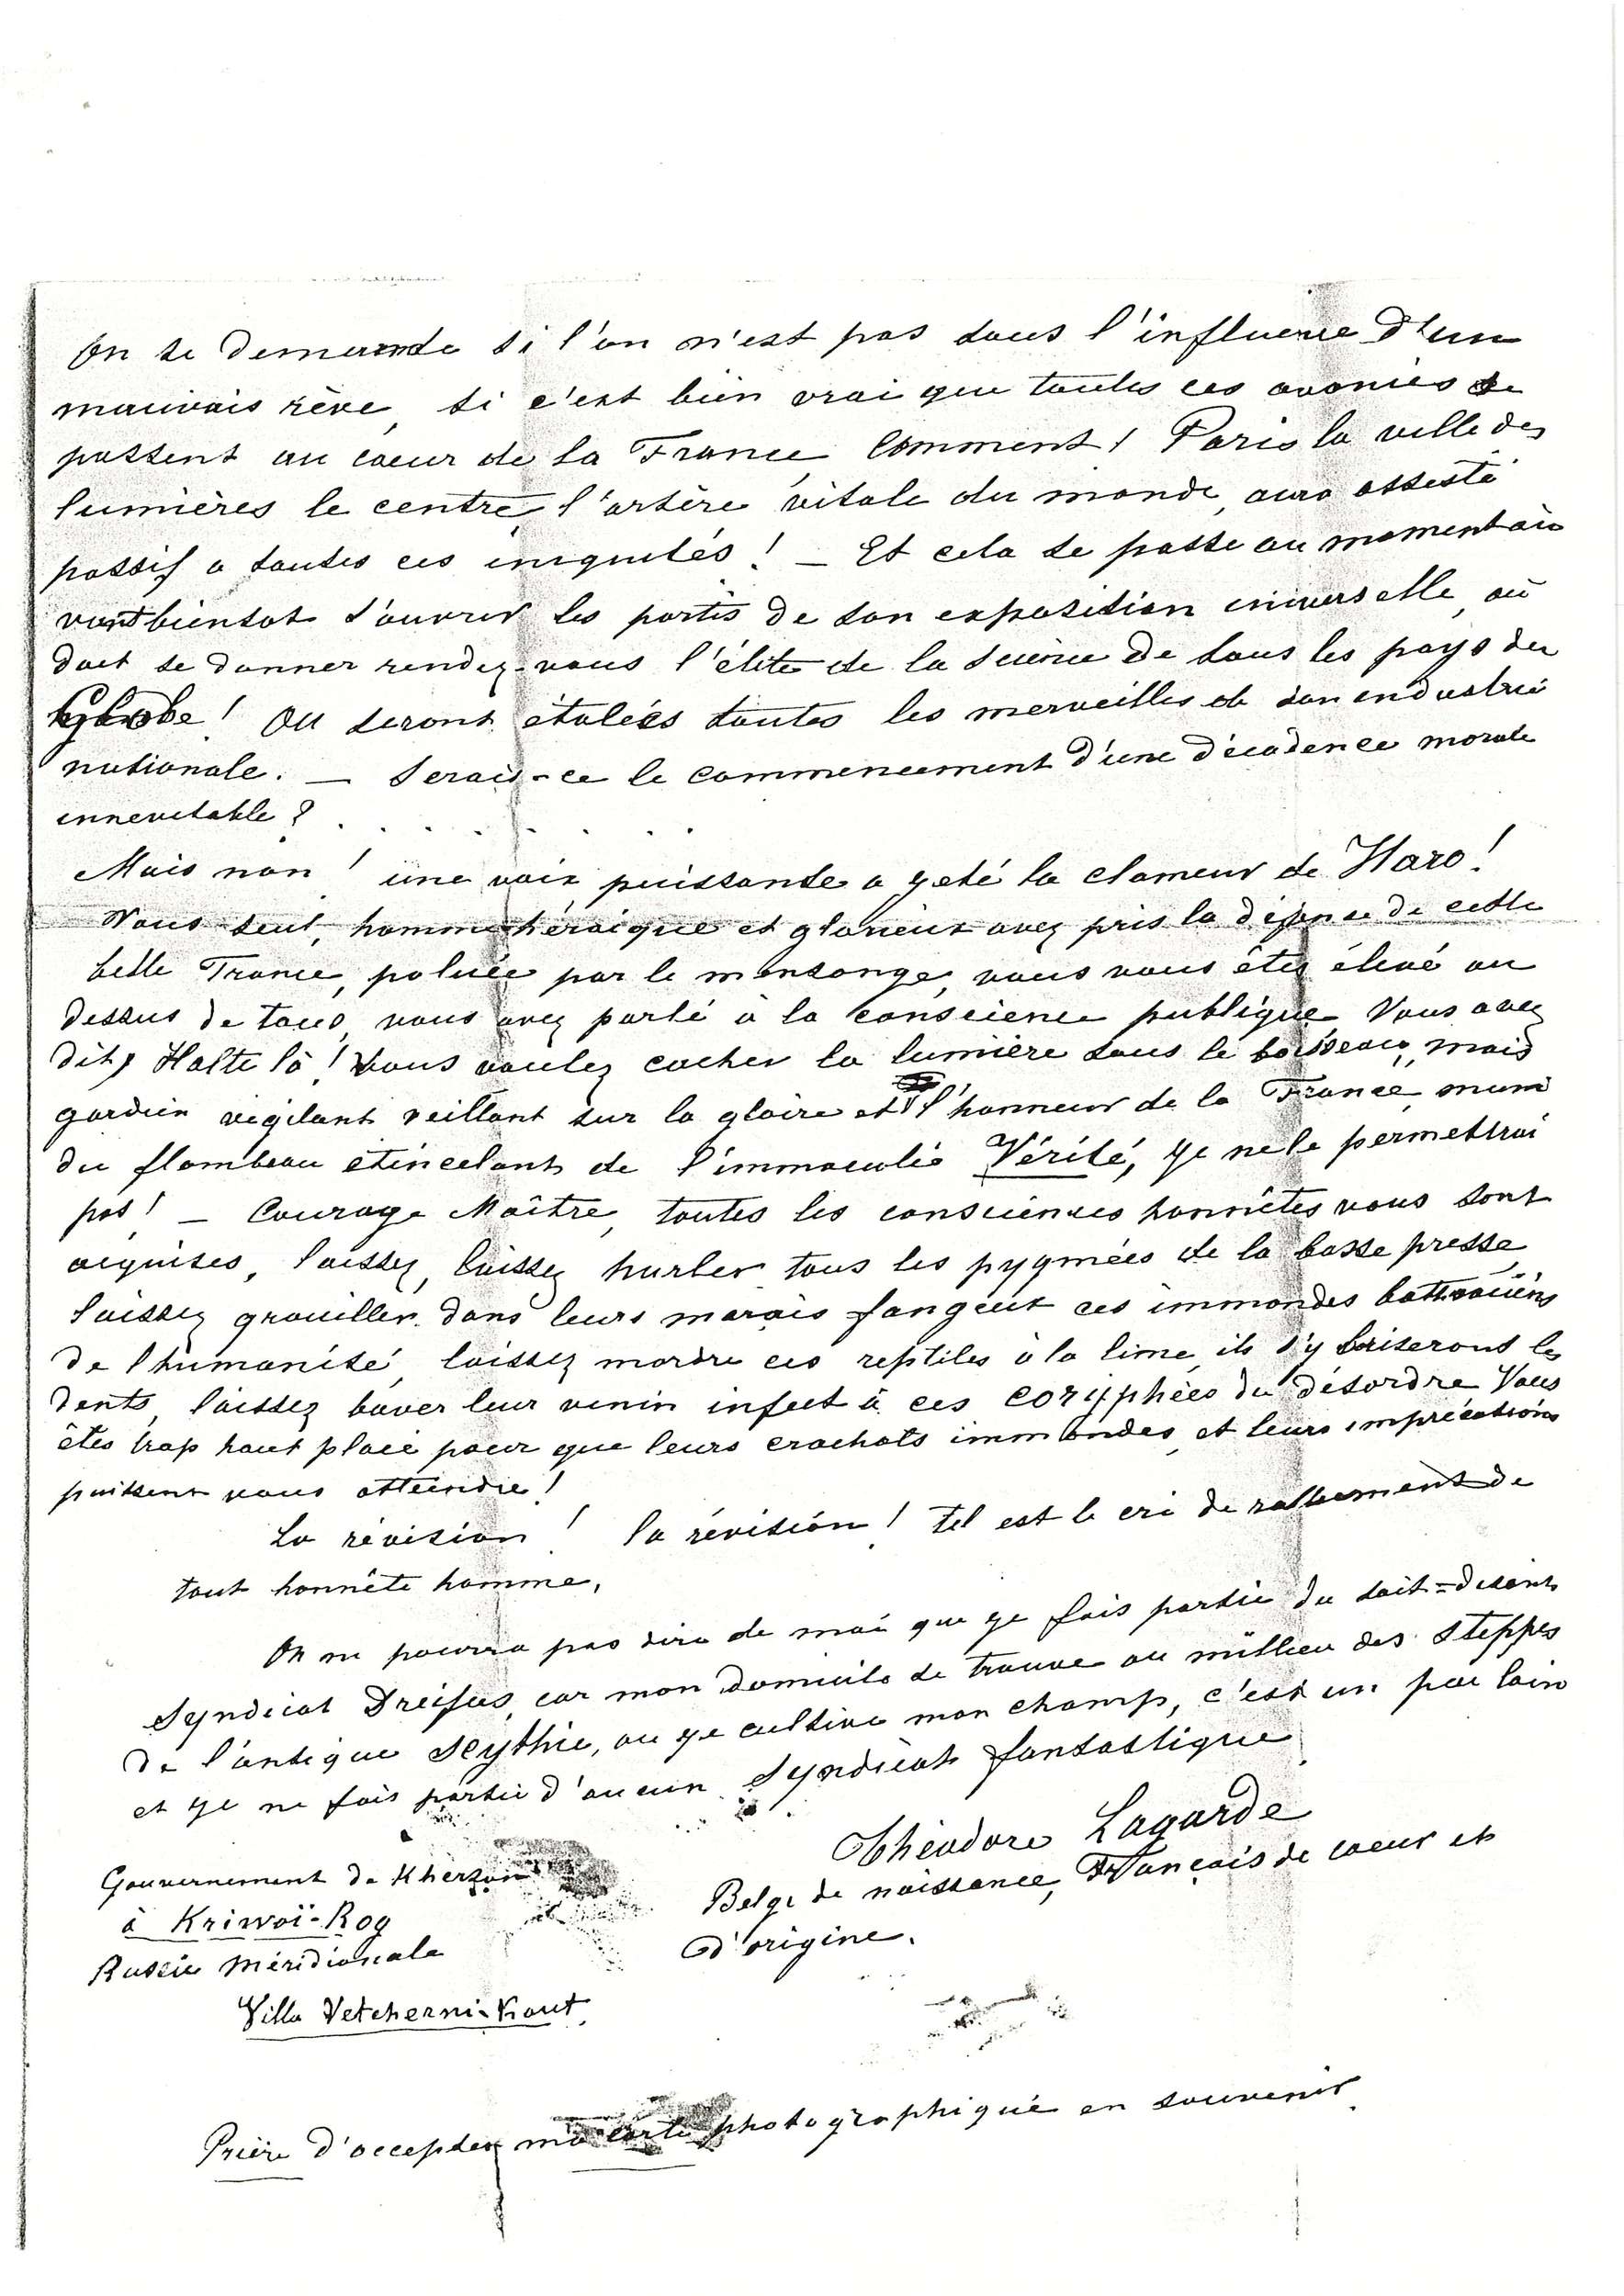 On se demande si l'on n'est pas sous l'influence d'un
mauvais rêve, si c'est bien vrai que toutes ces avanies se
passent au cœur de la France, Comment! Paris la ville des
lumières le centre, l'artère vitale du monde, aura assisté
passif a toutes ces iniquités! _ Et cela se passe au moment où
vont bientot s'ouvrir les portes de son exposition universelle, où
doit se donner rendez-vous l'élite de la science de tous les pays du
Globe! Ou seront étalées toutes les merveilles de son industrie
nationale. _ Serais-ce le commencement d'une décadence morale
innevitable? . . . . . . .
Mais non! une voix puissante a jeté la clameur de Haro!
Vous seul, homme héroïque et glorieux avez pris la défense de cette
belle France, poluée par le mensonge, vous vous êtes élevé au
dessus de tous, vous avez parlé à la conscience publique Vous avez
dit, Halte là! Vous voulez cacher la lumière sous le boisseau, mais
gardien vigilant veillant sur la gloire et l'honneur de la France, muni
du flambeau étincelant de l'immaculée Vérité, je ne le permettrai
pas! _ Courage Maître, toutes les consciences honnêtes vous sont
acquises, laissez, laissez hurler tous les pygmées de la basse presse,
laissez grouiller dans leurs marais fangeux ces immondes battraciens
de l'humanité, laissez mordre ces reptiles à la lime, ils s'y briseront les
dents, laissez baver leur venin infect à ces coryphées du désordre Vous
êtes trop haut placé pour que leurs crachats immondes, et leurs imprécations
puissent vous atteindre!
La révision! la révision! tel est le cri de ralliement de
tout honnête homme.
On ne pourra pas dire de moi que je fais partie du soit=disant
Syndicat Dreifus, car mon domicile se trouve au millieu des steppes
de l'antique Scythie, ou je cultive mon champ, c'est un peu loin
et je ne fais partie d'aucun Syndicat fantastique
Théodore Lagarde
Belge de naissance, Français de cœur et
d'origine.
Gouvernement de Kherson
à Kriwoï-Rog
Russie Méridionale
Villa Vetcherni-Kout
Prière d'accepter ma carte photographique en souvenir